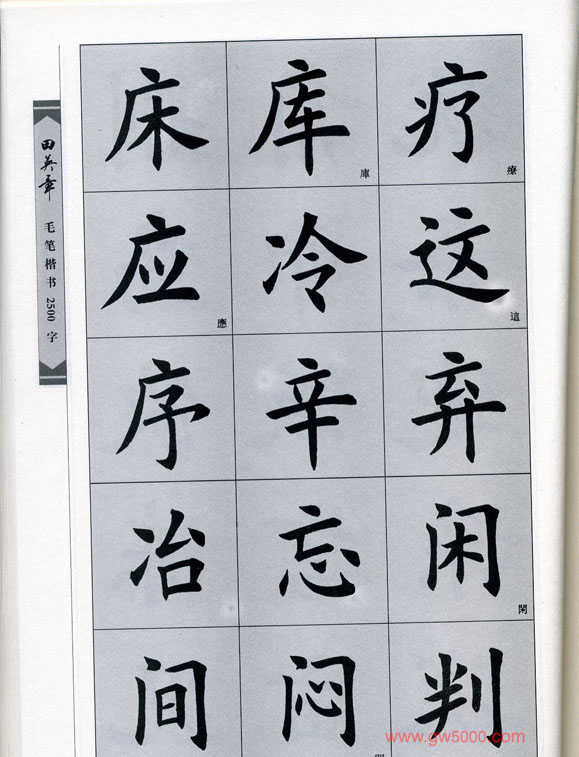 田英章 毛笔楷书2500字
床 库 庫 疗 療
应 應 冷 这 這
序 辛 弃
冶 忘 闲 閑
间 闷 判
www.gw5000.com